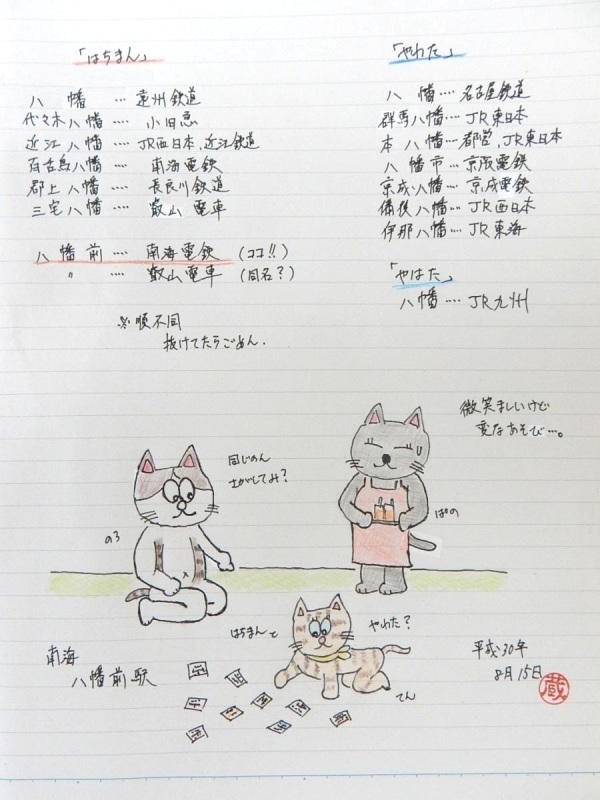 「はちまん」
八幡 … 遠州鉄道
代々木八幡 … 小田急
近江八幡 … JR西日本、近江鉄道
百舌鳥八幡 … 南海電鉄
郡上八幡 … 長良川鉄道
三宅八幡 … 叡山電車
八幡前 … 南海電鉄 (ココ!!)
〃 … 叡山電車 (同名?)
※順不同
抜けてたらごめん.
「やわた」
八幡 … 名古屋鉄道
群馬八幡 … JR東日本
本八幡 … 都営、JR東日本
八幡市 … 京阪電鉄
京成八幡 … 京成電鉄
備後八幡 … JR西日本
伊那八幡 … JR東海
「やはた」
八幡 … JR九州
微笑ましいけど
変なあそび…。
同じのん
さがしてみ?
のろ
ぱの
はちまんと
やわた?
てん
南海
八幡前駅
平成30年
8月15日
蔵